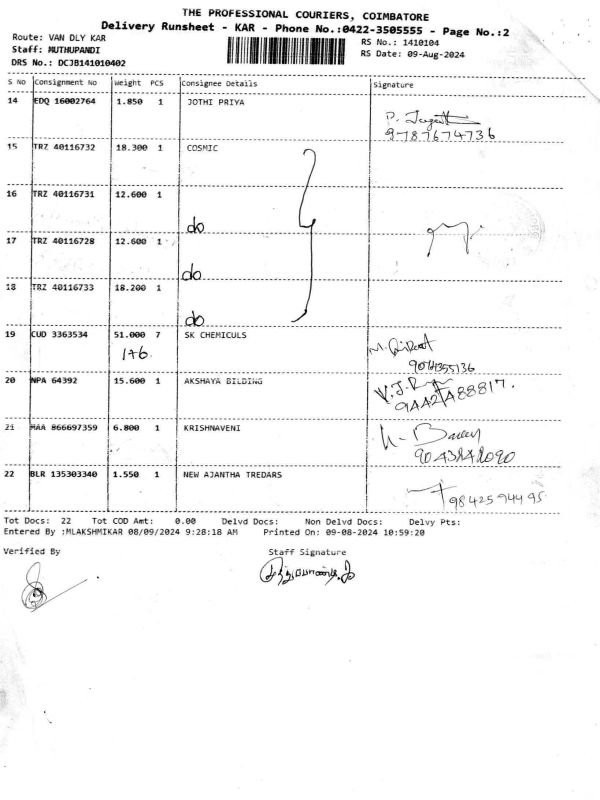 THE PROFESSIONAL COURIERS, COIMBATORE
Delivery Runsheet - KAR - Phone No.:0422-3505555 - Page No.:2
Route: VAN DLY KAR
RS No.: 1410104
Staff: MUTHUPANDI
RS Date: 09-Aug-2024
DRS No.: DCJB141010402
S No Consignment No Weight PCS Consignee Details Signature
14 EDQ 16002764 1.850 1 JOTHI PRIYA
9787674736
15 TRZ 40116732 18.300 1 COSMIC
16 TRZ 40116731 12.600 1
do
17 TRZ 40116728 12.600 1
do
18 TRZ 40116733 18.200 1
do
19 CUD 3363534 51.000 7 SK CHEMICULS
1+6
20 NPA 64392 15.600 1 AKSHAYA BILDING
V.J.R
21 MAA 866697359 6.800 1 KRISHNAVENI
22 BLR 135303340 1.550 1 NEW AJANTHA TREDARS
9842594495
Tot Docs: 22 Tot COD Amt: 0.00 Delvd Docs: Non Delvd Docs: Delvy Pts:
Entered By :MLAKSHMIKAR 08/09/2024 9:28:18 AM Printed On: 09-08-2024 10:59:20
Verified By Staff Signature